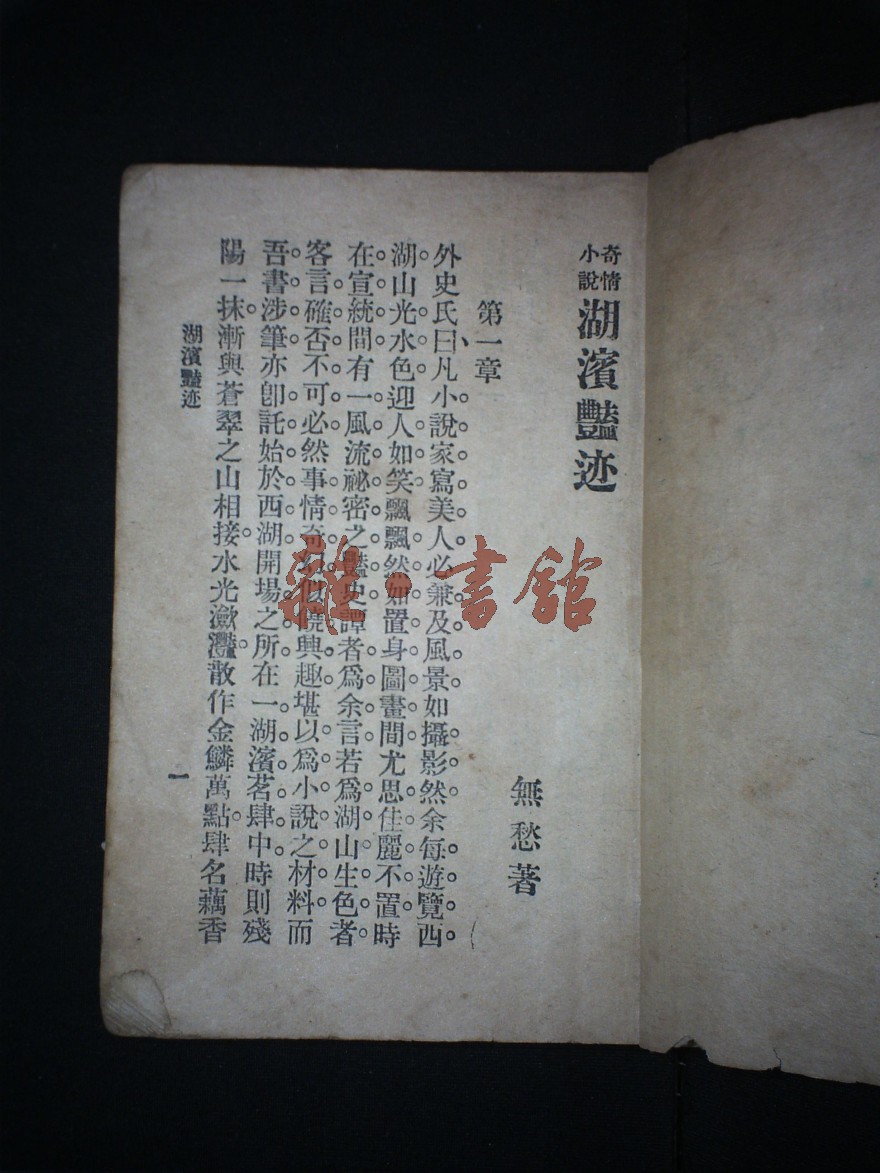 奇情小說
湖濱豔迹
無愁著
第一章
外史氏曰、凡小說家寫美人必兼及風景如攝影然余每遊覽西
湖山光水色迎人如笑飄飄然如置身圖畫間尤思佳麗不置時
在宣統間有一風流祕密之豔史譚者爲余言若爲湖山生色者
客言確否不可必然事情奇饒興趣堪以爲小說之材料而
吾書涉筆亦卽託始於西湖開場之所在一湖濱茗肆中時則殘
陽一抹漸與蒼翠之山相接水光瀲灩散作金鱗萬點肆名藕香
湖濱豔迹
一
雜·書館